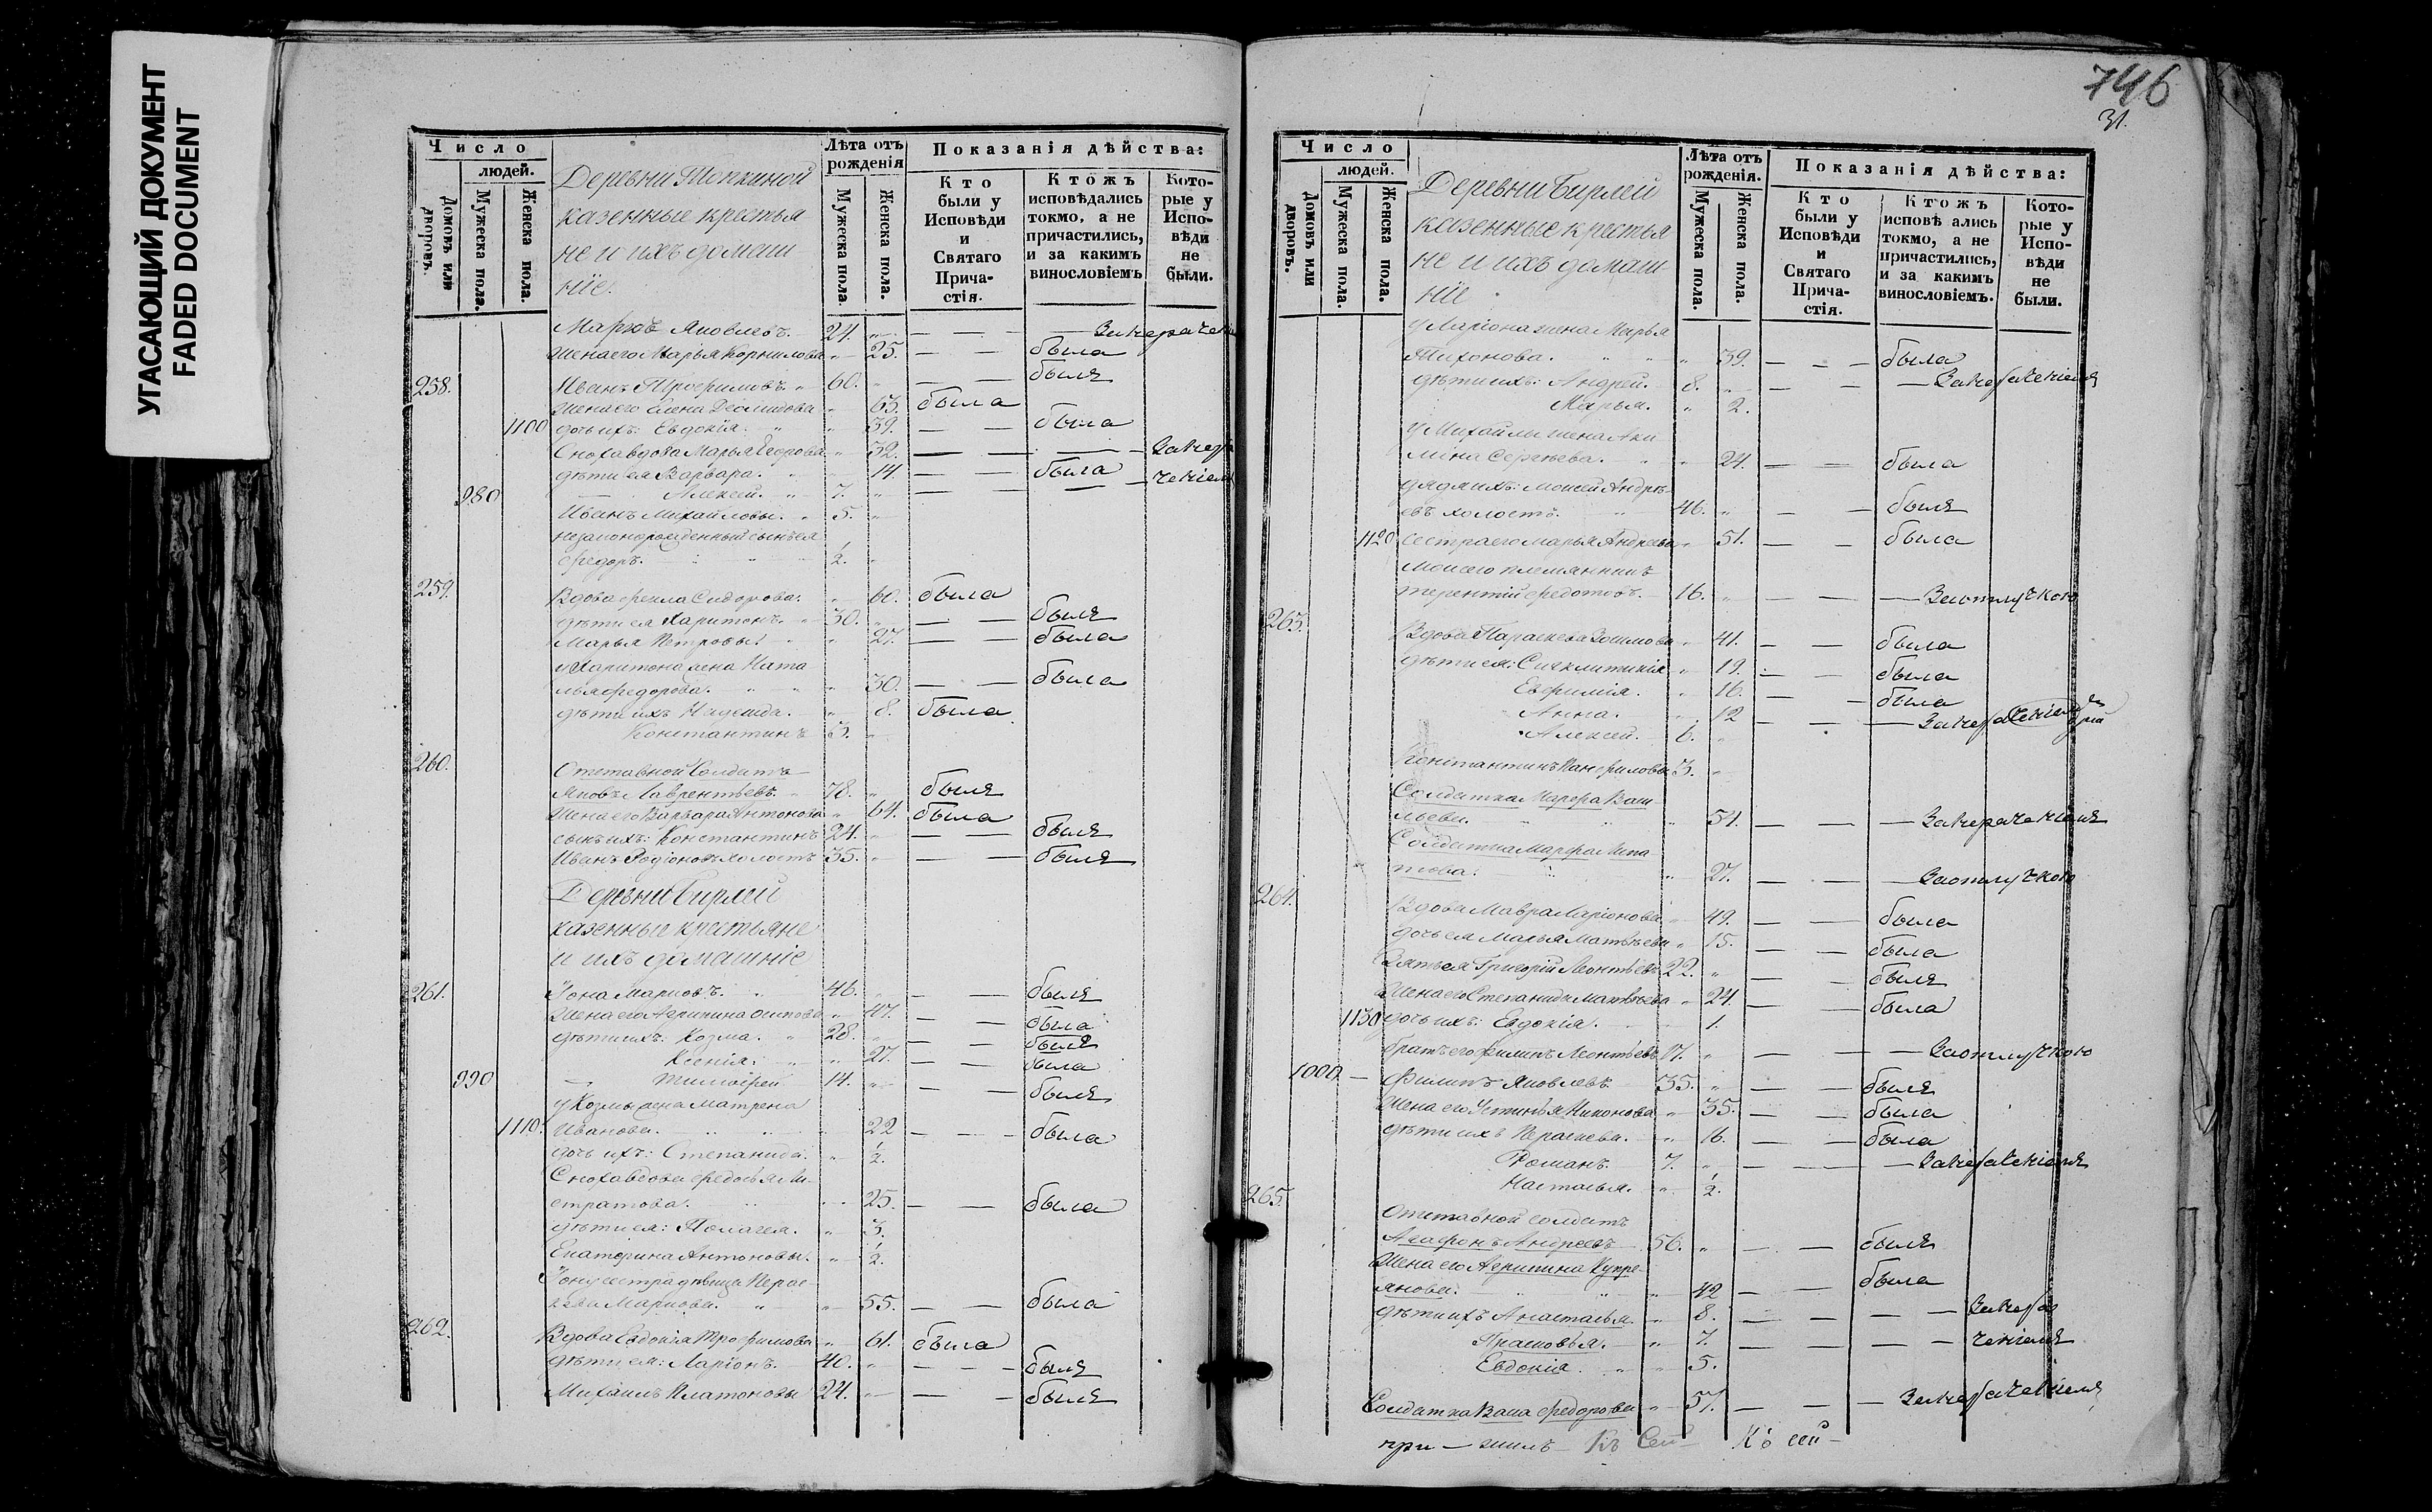 УГАСАЮЩИЙ ДОКУМЕНТ
FADED DOCUMENT
Число
людей.
Домовъ или дворовъ.
Мужеска пола.
Женска пола.
Деревни Топкиной
казенные крестья
не и ихъ домаш-
ніе.
Лѣта отъ рожденія
Мужеска пола.
Женска пола.
Показанія дѣйства:
Кто были у Исповѣди и Святаго Прича-стія.
Ктожъ исповѣдались токмо, а не причастились, и за какимъ винословіемъ
Кото-рые у Испо-вѣди не были.
Марко Яковлевъ. 24. "
Жена его Марья Корнилова " 25. была
258. Иванъ Трофимовъ. " 60. " былъ
Жена его Елена Деомидова " 63. была
1100 дочь ихъ: Евдокія. " 39. была
Сноха вдова Марья Федорова " 32.
дѣти ея Варвара. " 14. была
980 Алексей. " 7. "
Иванъ Михайловы. " 5. "
незаконорожденный сынъ ея
Федоръ. 1/2. "
259. Вдова Фекла Сидорова. " 60. была
дѣти ея Харитонъ. " 30. " былъ
Марья Петровы. " 27. была
у Харитона жена Ната-
лья Федорова. " 30. была
дѣти ихъ Надежда. " 8. была
Константинъ 3. "
260. Отставной Солдатъ
Яковъ Лаврентьевъ. 78. " былъ
Жена его Варвара Антонова " 64. была
сынъ ихъ: Константинъ 24. " былъ
Иванъ Родіоновъ холостъ 35. " былъ
Деревни Бирлей
казенные крестьяне
и ихъ домашніе
261. Іона Марковъ. " 46. " былъ
Жена его Агрипина Осипова " 47. была
дѣти ихъ: Козма. " 28. " былъ
Ксенія. " 27. была
990 Тимофей 14. " былъ
у Козмы жена Матрена
1110. Иванова. " 22 была
дочь ихъ: Степанида. " 1/2.
Сноха вдова Федосья
стратова. " 25. была
дѣти ея: Пелагея. " 3.
Екатерина Антоновы. " 1/2.
Іоны сестра девица Парас-
кева Маркова. " 55. была
262. Вдова Евдокія Трофимова " 61. была
дѣти ея: Ларіонъ. 40. " былъ
Михаилъ Платоновы 24. " былъ
746
31.
Число
людей.
Домовъ или дворовъ.
Мужеска пола.
Женска пола.
Деревни Бирлей
казенные крестья
не и ихъ домаш-
ніе
Лѣта отъ рожденія.
Мужеска пола.
Женска пола.
Показанія дѣйства:
Кто были у Исповѣди и Святаго Прича-стія.
Ктожъ исповѣ ались токмо, а не причастились, и за какимъ винословіемъ.
Кото-рые у Испо-вѣди не были.
у Ларіона жена Марья
Тихонова. " 39. была
дѣти ихъ: Андрей. 8. "
Марья. " 2.
у Михайлы жена Аки-
лина Сергѣева. " 24. была
дядя ихъ: Моисей Андрѣ-
евъ холостъ. 46. " былъ
1120 сестра его Марья Андреева " 51. была
Моисея племянникъ
Терентій Федотовъ. 16. " За отлучкою
263. Вдова Параскева Зотимова " 41. была
дѣти ея: Сигклитикія " 19. была
Евфимія. " 16. была
Анна. " 12
Алексей. 6. "
Константинъ Панфиловы 3. "
Солдатка Марфа Васи-
льева. " 54.
Солдатка Марфа Ипа-
това. " 27. За отлучкою
264. Вдова Мавра Ларіонова " 49. была
дочь ея Марья Матвѣева " 15. была
Зять ея Григорій Леонтьевъ 22. " былъ
Жена его Степанида Матвѣева " 24. была
1130 дочь ихъ: Евдокія. " 1.
братъ его Филипъ Леонтьевъ 17. " За отлучкою
1000. Филипъ Яковлевъ. 35. " былъ
Жена его Устинья Никонова " 35. была
дѣти ихъ Параскева. " 16. была
Романъ. 7. "
Наталья. " 1/2.
265. Отставной солдатъ
Агафонъ Андреевъ 56. " былъ
Жена его Агрипина Купре-
янова. " 42 была
дѣти ихъ Анастасья. " 8.
Прасковья. " 7.
Евдокія. " 5.
Солдатка Васа Федорова " 57.